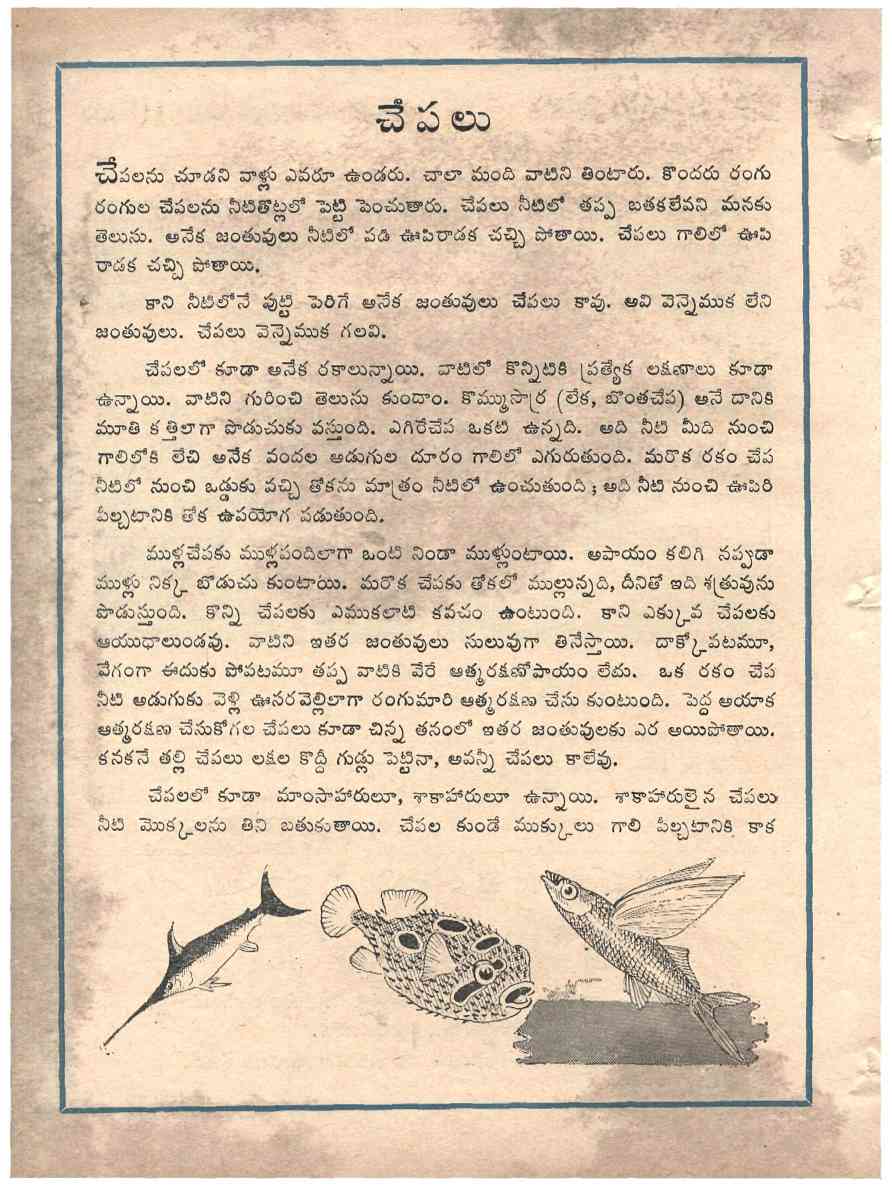 చేపలు
చేపలను చూడని వాళ్లు ఎవరూ ఉండరు. చాలా మంది వాటిని తింటారు. కొందరు రంగు
రంగుల చేపలను నీటితొట్లలో పెట్టి పెంచుతారు. చేపలు నీటిలో తప్ప బతకలేవని మనకు
తెలుసు. అనేక జంతువులు నీటిలో పడి ఊపిరాడక చచ్చి పోతాయి. చేపలు గాలిలో ఊపి
రాడక చచ్చి పోతాయి.
కాని నీటిలోనే పుట్టి పెరిగే అనేక జంతువులు చేపలు కావు. అవి వెన్నెముక లేని
జంతువులు. చేపలు వెన్నెముక గలవి.
చేపలలో కూడా అనేక రకాలున్నాయి. వాటిలో కొన్నిటికి ప్రత్యేక లక్షణాలు కూడా
ఉన్నాయి. వాటిని గురించి తెలుసు కుందాం. కొమ్ముసొర్ర (లేక, బొంతచేప) అనే దానికి
మూతి కత్తిలాగా పొడుచుకు వస్తుంది. ఎగిరేచేప ఒకటి ఉన్నది. అది నీటి మీది నుంచి
గాలిలోకి లేచి అనేక వందల అడుగుల దూరం గాలిలో ఎగురుతుంది. మరొక రకం చేప
నీటిలో నుంచి ఒడ్డుకు వచ్చి తోకను మాత్రం నీటిలో ఉంచుతుంది; అది నీటి నుంచి ఊపిరి
పీల్చటానికి తోక ఉపయోగ పడుతుంది.
ముళ్లచేపకు ముళ్లపందిలాగా ఒంటి నిండా ముళ్లుంటాయి. అపాయం కలిగి నప్పుడా
ముళ్లు నిక్క బొడుచు కుంటాయి. మరొక చేపకు తోకలో ముల్లున్నది, దీనితో ఇది శత్రువును
పొడుస్తుంది. కొన్ని చేపలకు ఎముకలాటి కవచం ఉంటుంది. కాని ఎక్కువ చేపలకు
ఆయుధాలుండవు. వాటిని ఇతర జంతువులు సులువుగా తినేస్తాయి. దాక్కోవటమూ,
వేగంగా ఈదుకు పోవటమూ తప్ప వాటికి వేరే ఆత్మరక్షణోపాయం లేదు. ఒక రకం చేప
నీటి అడుగుకు వెళ్లి ఊసరవెల్లిలాగా రంగుమారి ఆత్మరక్షణ చేసు కుంటుంది. పెద్ద అయాక
ఆత్మరక్షణ చేసుకోగల చేపలు కూడా చిన్న తనంలో ఇతర జంతువులకు ఎర అయిపోతాయి.
కనకనే తల్లి చేపలు లక్షల కొద్దీ గుడ్లు పెట్టినా, అవన్నీ చేపలు కాలేవు.
చేపలలో కూడా మాంసాహారులూ, శాకాహారులూ ఉన్నాయి. శాకాహారులైన చేపలు
నీటి మొక్కలను తిని బతుకుతాయి. చేపల కుండే ముక్కులు గాలి పీల్చటానికి కాక